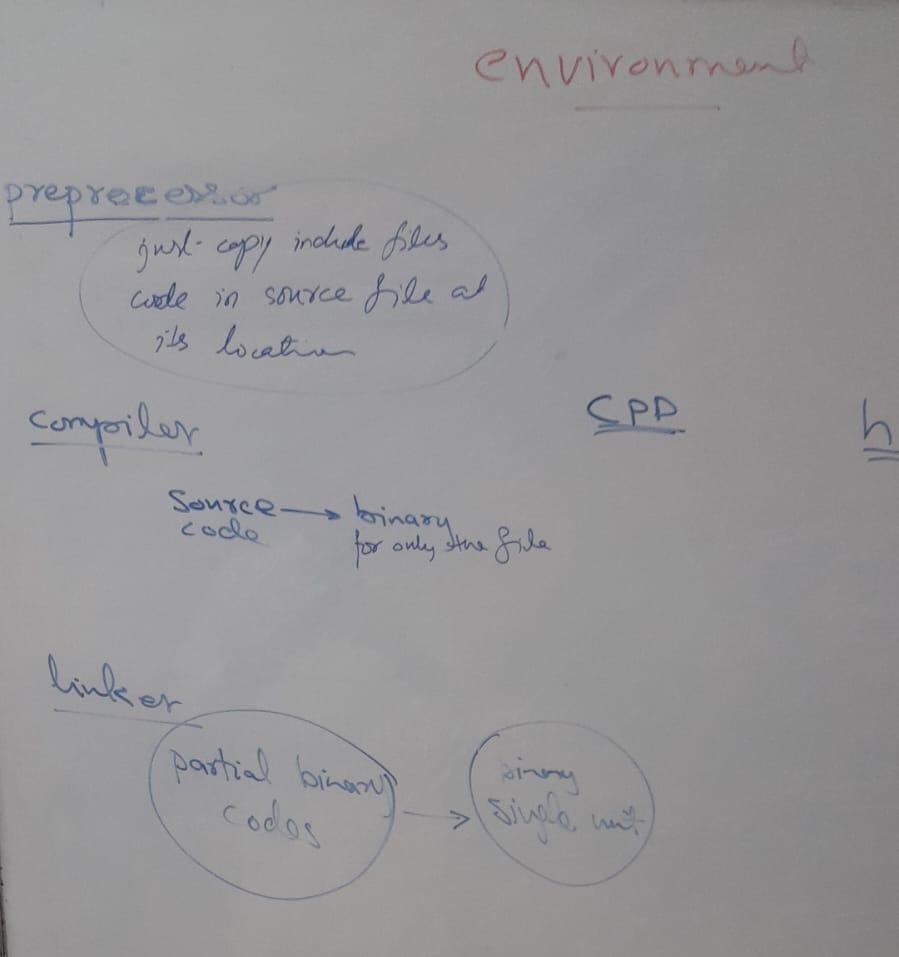 environment
preprocessor
just copy include files
code in source file at
its location
compiler
CPP
h
Source → binary
code
for only the file
linker
partial binary
codes
→
binary
single unit